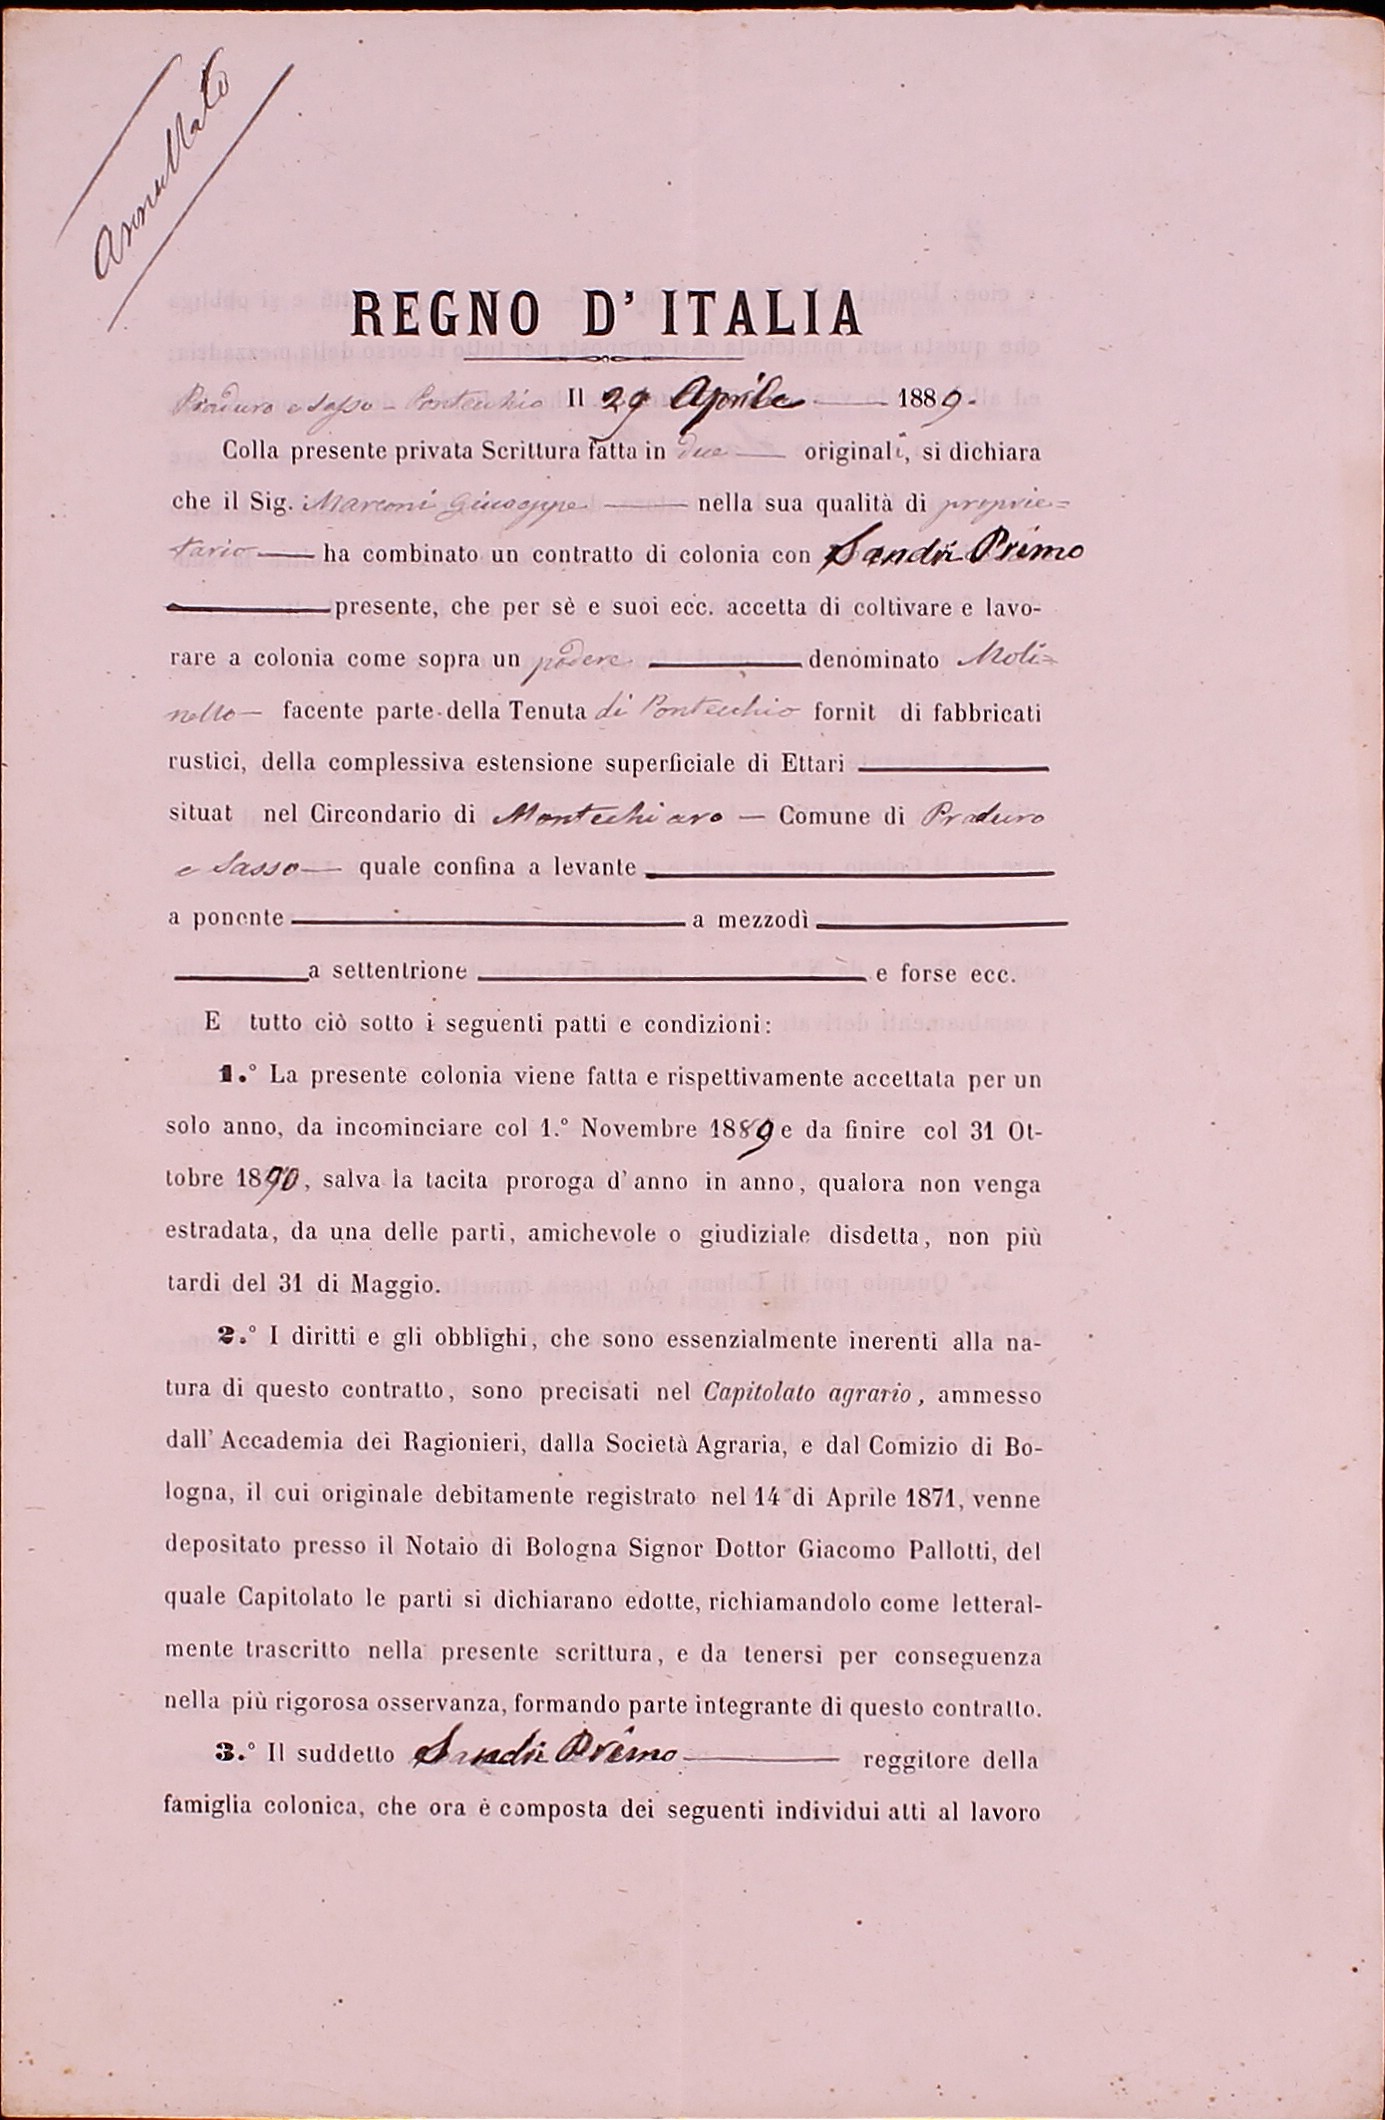 Annullato
REGNO D' ITALIA
Praduro e Sasso - Pontecchio Il 29 Aprile 1889.
Colla presente privata Scrittura fatta in due originali, si dichiara
che il Sig. Marconi Giuseppe nella sua qualità di proprie=
tario ha combinato un contratto di colonia con Sandri Primo
presente, che per sè e suoi ecc. accetta di coltivare e lavo-
rare a colonia come sopra un podere denominato Moli=
nello facente parte della Tenuta di Pontecchio fornit di fabbricati
rustici, della complessiva estensione superficiale di Ettari
situat nel Circondario di Montechiaro — Comune di Praduro
e Sasso quale confina a levante
a ponente a mezzodì
a settentrione e forse ecc.
E tutto ciò sotto i seguenti patti e condizioni:
1.° La presente colonia viene fatta e rispettivamente accettata per un
solo anno, da incominciare col 1.° Novembre 1889 e da finire col 31 Ot-
tobre 1890, salva la tacita proroga d' anno in anno, qualora non venga
estradata, da una delle parti, amichevole o giudiziale disdetta, non più
tardi del 31 di Maggio.
2.° I diritti e gli obblighi, che sono essenzialmente inerenti alla na-
tura di questo contratto, sono precisati nel Capitolato agrario, ammesso
dall' Accademia dei Ragionieri, dalla Società Agraria, e dal Comizio di Bo-
logna, il cui originale debitamente registrato nel 14 di Aprile 1871, venne
depositato presso il Notaio di Bologna Signor Dottor Giacomo Pallotti, del
quale Capitolato le parti si dichiarano edotte, richiamandolo come letteral-
mente trascritto nella presente scrittura, e da tenersi per conseguenza
nella più rigorosa osservanza, formando parte integrante di questo contratto.
3.° Il suddetto Sandri Primo reggitore della
famiglia colonica, che ora è composta dei seguenti individui atti al lavoro